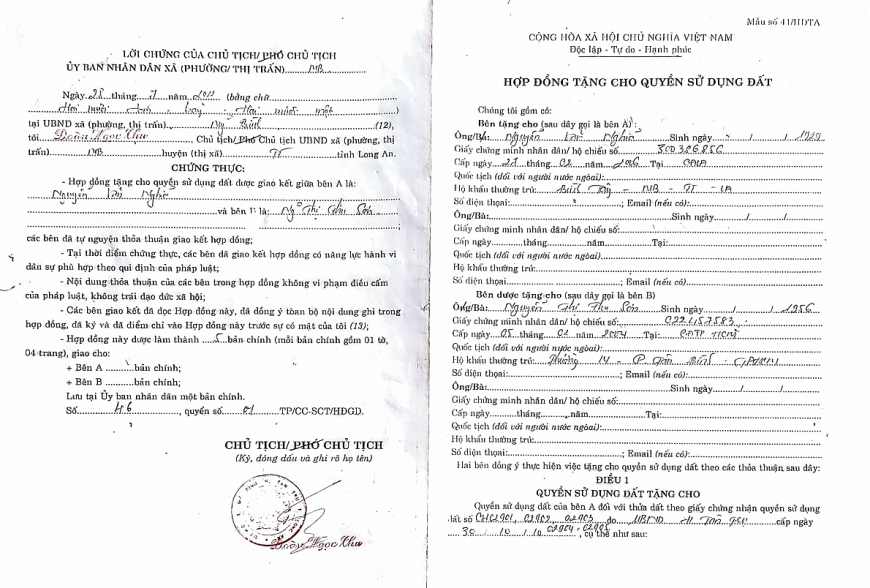 LỜI CHỨNG CỦA CHỦ TỊCH/ PHÓ CHỦ TỊCH
ỦY BAN NHÂN DÂN XÃ (PHƯỜNG/ THỊ TRẤN)......MB
Ngày 28 tháng 7 năm 2011 (bằng chữ
)
tại UBND xã (phường, thị trấn) Mỹ Bình (12),
tôi, Đoàn Ngọc Như, Chủ tịch/ Phó Chủ tịch UBND xã (phường, thị
trấn) MB huyện (thị xã) TT tỉnh Long An.
CHỨNG THỰC:
- Hợp đồng tặng cho quyền sử dụng đất được giao kết giữa bên A là:
Nguyễn Nghê
và bên B là: Thị Thu Sơn
;
các bên đã tự nguyện thỏa thuận giao kết hợp đồng;
- Tại thời điểm chứng thực, các bên đã giao kết hợp đồng có năng lực hành vi
dân sự phù hợp theo qui định của pháp luật;
- Nội dung thỏa thuận của các bên trong hợp đồng không vi phạm điều cấm
của pháp luật, không trái đạo đức xã hội;
- Các bên giao kết đã đọc Hợp đồng này, đã đồng ý toàn bộ nội dung ghi trong
hợp đồng, đã ký và đã điểm chỉ vào Hợp đồng này trước sự có mặt của tôi (13);
- Hợp đồng này được làm thành 5 bản chính (mỗi bản chính gồm 01 tờ,
04 trang), giao cho:
+ Bên A ..........bản chính;
+ Bên B ..........bản chính;
Lưu tại Ủy ban nhân dân một bản chính.
Số 46, quyển số 01 TP/CC-SCT/HDGD.
CHỦ TỊCH/ PHÓ CHỦ TỊCH
(Ký, đóng dấu và ghi rõ họ tên)
Đoàn Ngọc Như
Mẫu số 41/HĐTA
CỘNG HÒA XÃ HỘI CHỦ NGHĨA VIỆT NAM
Độc lập - Tự do - Hạnh phúc
HỢP ĐỒNG TẶNG CHO QUYỀN SỬ DỤNG ĐẤT
Chúng tôi gồm có:
Bên tặng cho (sau đây gọi là bên A):
Ông/Bà: Nguyễn Nghê Sinh ngày / / 1929
Giấy chứng minh nhân dân/ hộ chiếu số: 300386856
Cấp ngày 21 tháng 02 năm 2006 Tại CALA
Quốc tịch (đối với người nước ngoài)
Hộ khẩu thường trú: - MB - TT - LA
Số điện thoại: ; Email (nếu có):
Ông/Bà: Sinh ngày / /
Giấy chứng minh nhân dân/ hộ chiếu số:
Cấp ngày........tháng........năm........Tại:
Quốc tịch (đối với người nước ngoài)
Hộ khẩu thường trú:
Số điện thoại: ; Email (nếu có):
Bên được tặng cho (sau đây gọi là bên B)
Ông/Bà: Nguyễn Thị Thu Sơn Sinh ngày / / 1956
Giấy chứng minh nhân dân/ hộ chiếu số: 022157583
Cấp ngày 05 tháng 02 năm 2004 Tại: CATP HCM
Quốc tịch (đối với người nước ngoài):
Hộ khẩu thường trú: Phường 14 - Tân Bình -
Số điện thoại: ; Email (nếu có):
Ông/Bà: Sinh ngày / /
Giấy chứng minh nhân dân/ hộ chiếu số:
Cấp ngày........tháng........năm........Tại:
Quốc tịch (đối với người nước ngoài):
Hộ khẩu thường trú:
Số điện thoại: ; Email (nếu có):
Hai bên đồng ý thực hiện việc tặng cho quyền sử dụng đất theo các thỏa thuận sau đây:
ĐIỀU 1
QUYỀN SỬ DỤNG ĐẤT TẶNG CHO
Quyền sử dụng đất của bên A đối với thửa đất theo giấy chứng nhận quyền sử dụng
đất số CH02901, 02902, 02903 do UBND H Tân cấp ngày
02904, 02905
30 / 10 / 10, cụ thể như sau: